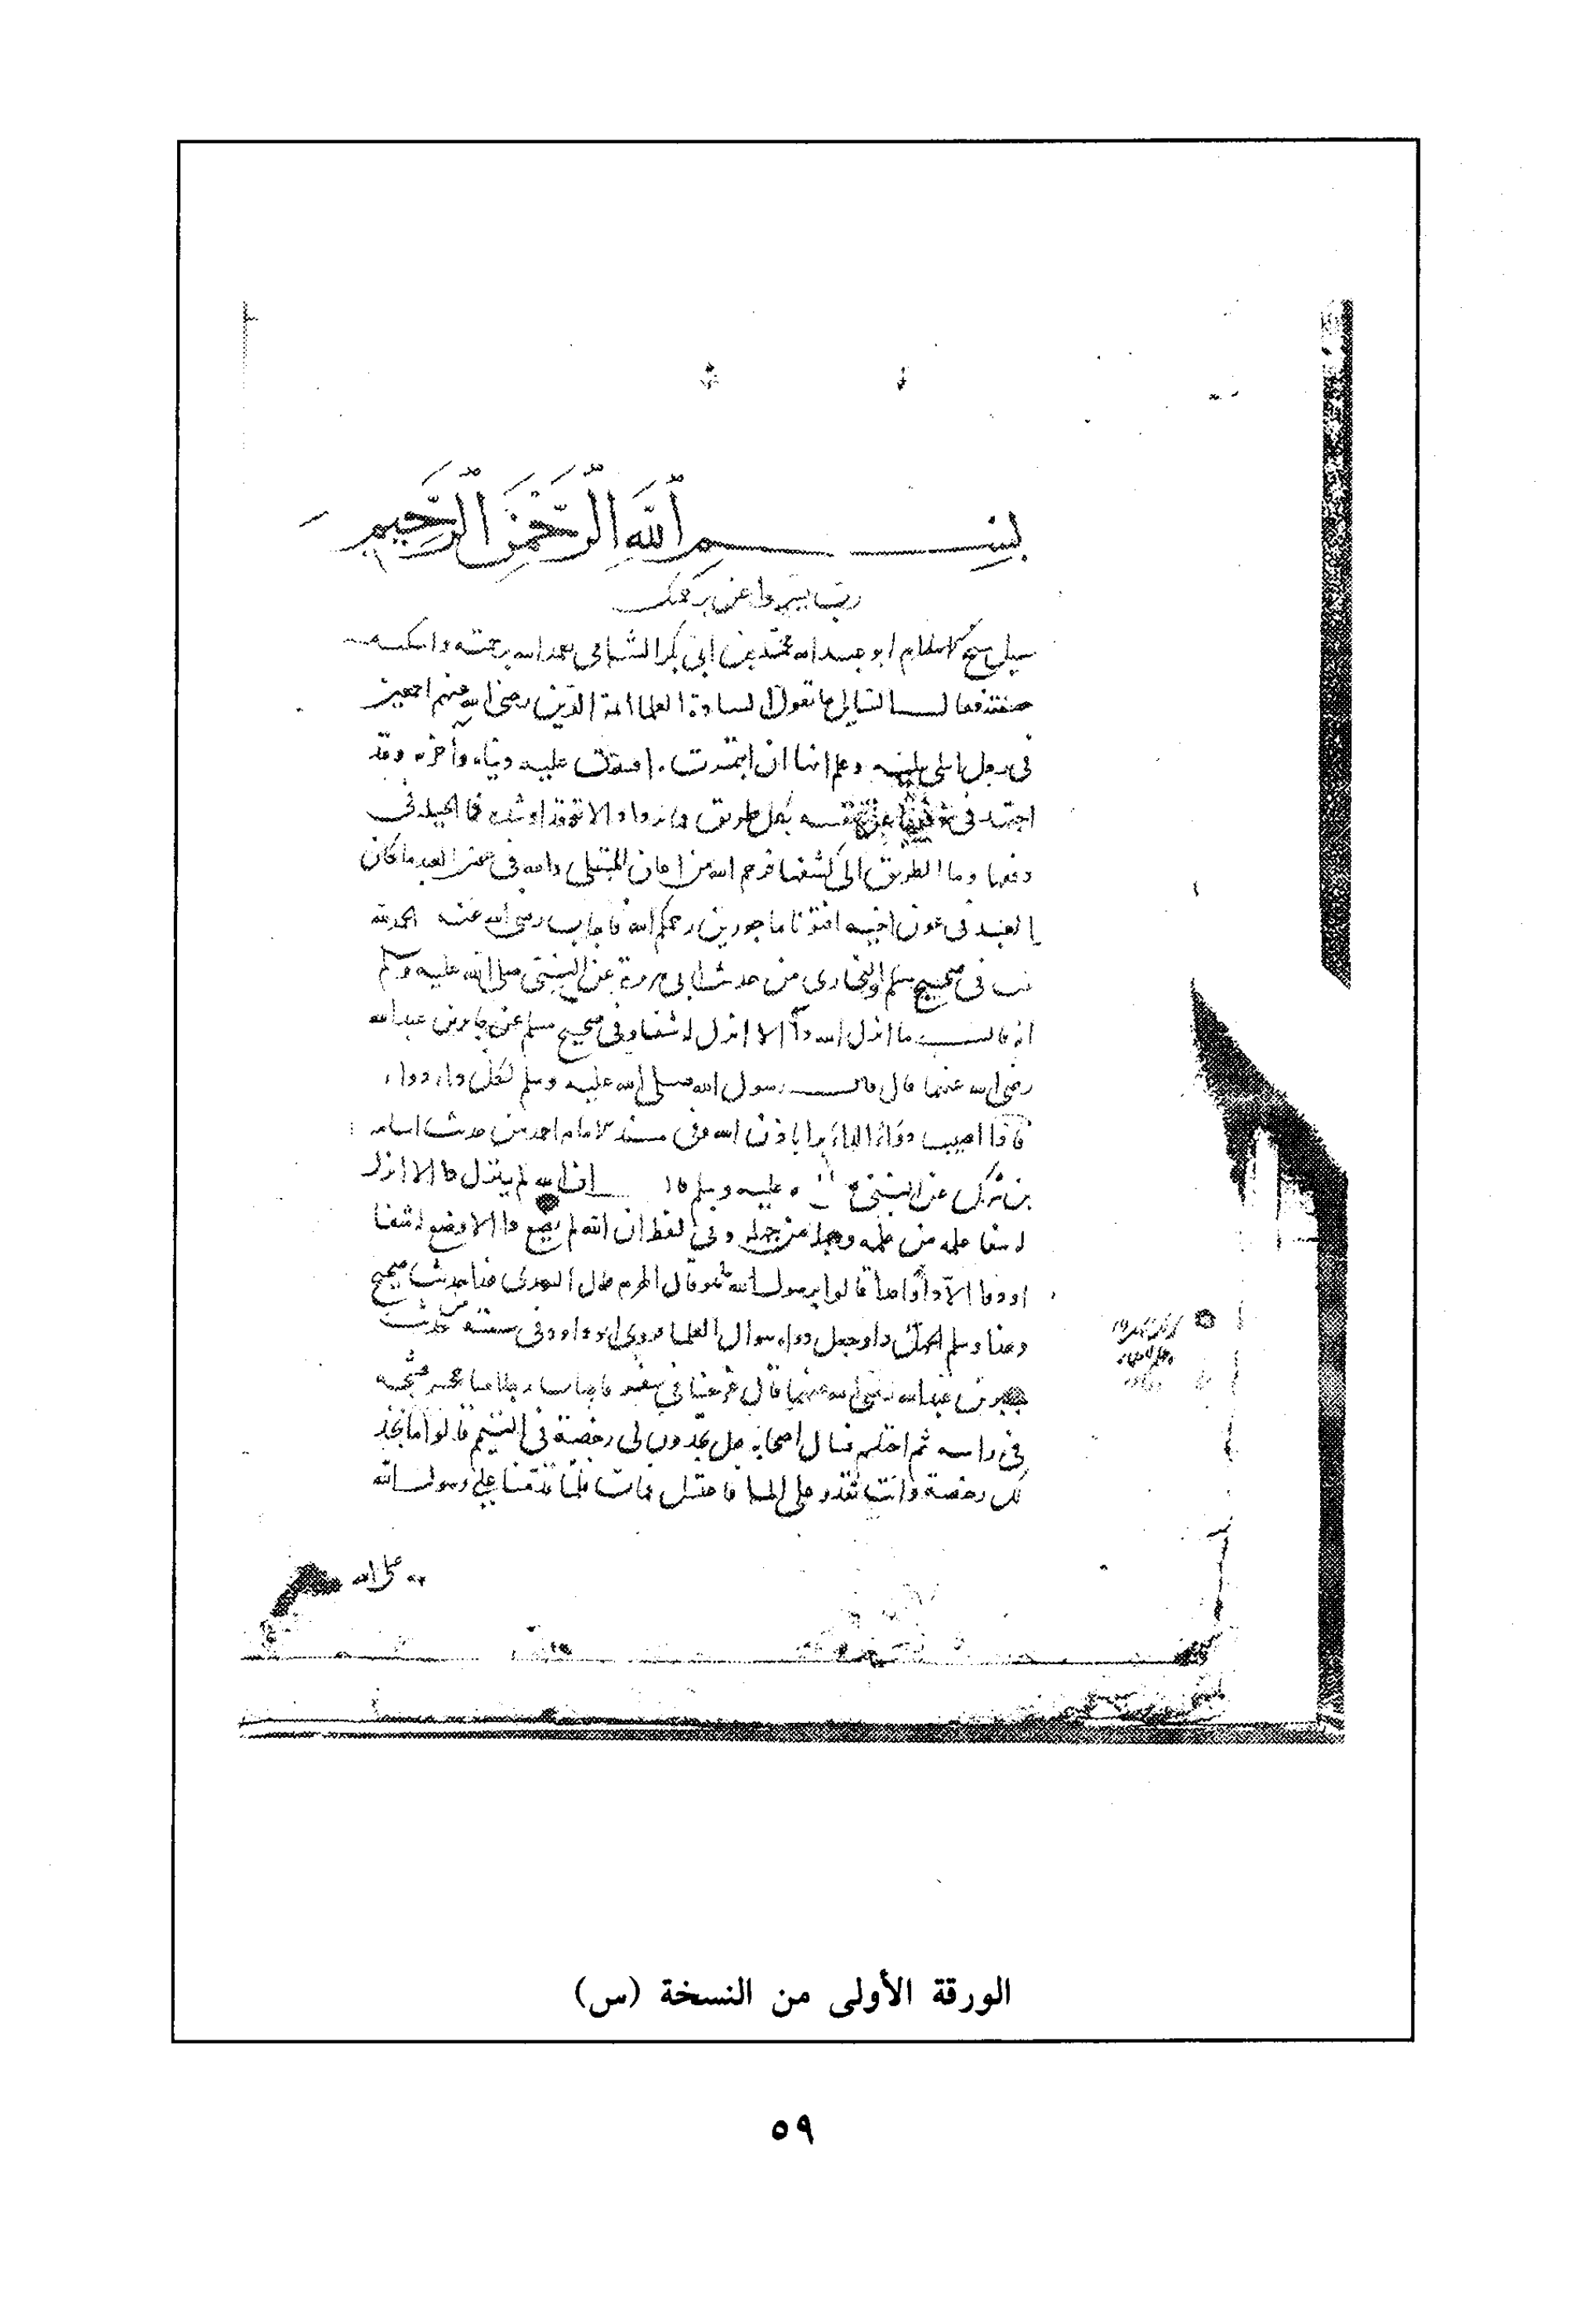 بسم الله الرحمن الرحيم
رب يسر واعن برحمتك
سيل شيخ الاسلام ابو عبد الله محمد بن ابي بكر الشافي تغمده الله برحمته واسكنه
جنته فقال السايل ما تقول السادة العلما ائمة الدين رضي الله عنهم اجمعين
في رجل ابتلي ببلية وعلم انها ان استمرت افسدت عليه دنياه وآخرته وقد
اجتهد في دفعها عن نفسه بكل طريق فما تزداد الا توقدا وشدة فما الحيلة في
دفعها وما الطريق الى كشفها فرحم الله من اعان المبتلى والله في عون العبد ما كان
العبد في عون اخيه افتونا ماجورين رحمكم الله فاجاب رضي الله عنه الحمد لله
ثبت في صحيح مسلم والبخاري من حديث ابي هريرة عن النبي صلى الله عليه وسلم
انه قال ما انزل الله داء الا انزل له شفا وفي صحيح مسلم عن جابر بن عبد الله
رضي الله عنهما قال قال رسول الله صلى الله عليه وسلم لكل داء دواء
فاذا اصيب دواء الداء برا باذن الله وفي مسند الامام احمد من حديث اسامه
بن شريك عن النبي عليه وسلم قال ان الله لم ينزل دا الا انزل
له شفا علمه من علمه وجهله من جهله وفي لفظ ان الله لم يضع دا الا وضع له شفا
او دوا الا داء واحدا قالوا يرسول الله ما هو قال الهرم قال الترمذي هذا حديث صحيح
وسلم الجهل دا وجعل دواه سوال العلما فروى ابو داود في سننه من حديث
جابر بن عبد الله رضي الله عنهما قال خرجنا في سفر فاصاب رجلا منا حجر فشجه
في راسه ثم احتلم فسال اصحابه هل تجدون لي رخصة في التيمم قالوا ما نجد
لك رخصة وانت تقدر على الما فاغتسل فمات فلما قدمنا على رسول الله
صلى الله
الورقة الأولى من النسخة (س)
٥٩